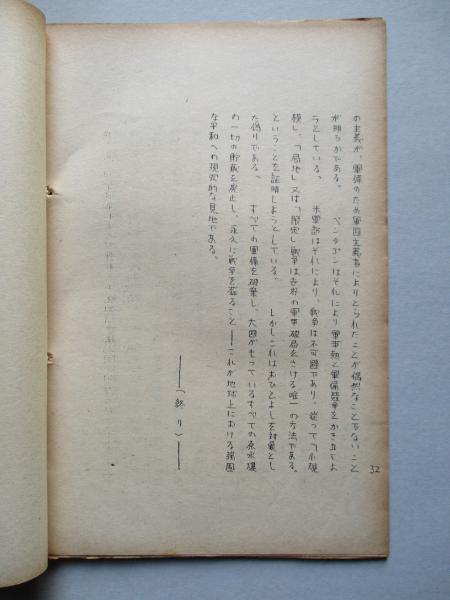 の主義が、軍備のため軍国主義者によりとられたことが偶然なことでないこと
が明らかである。　ペンタゴンはそれにより軍事熱と軍備競争をかき立てよ
うとしている。　米軍部はそれにより、戦争は不可避であり、従って「小規
模」、「局地」又は「限定」戦争は世界の軍事破局をさける唯一の方法である。
ということを証明しようとしている。　しかしこれはおひとよしを対象とし
た偽りである。　すべての軍備を破棄し、大国がもっているすべての原水爆
の一切の貯蔵を廃止し、永久に戦争を葬ること――これが地球上における強固
な平和への現実的な見地である。
――（終り）――
32